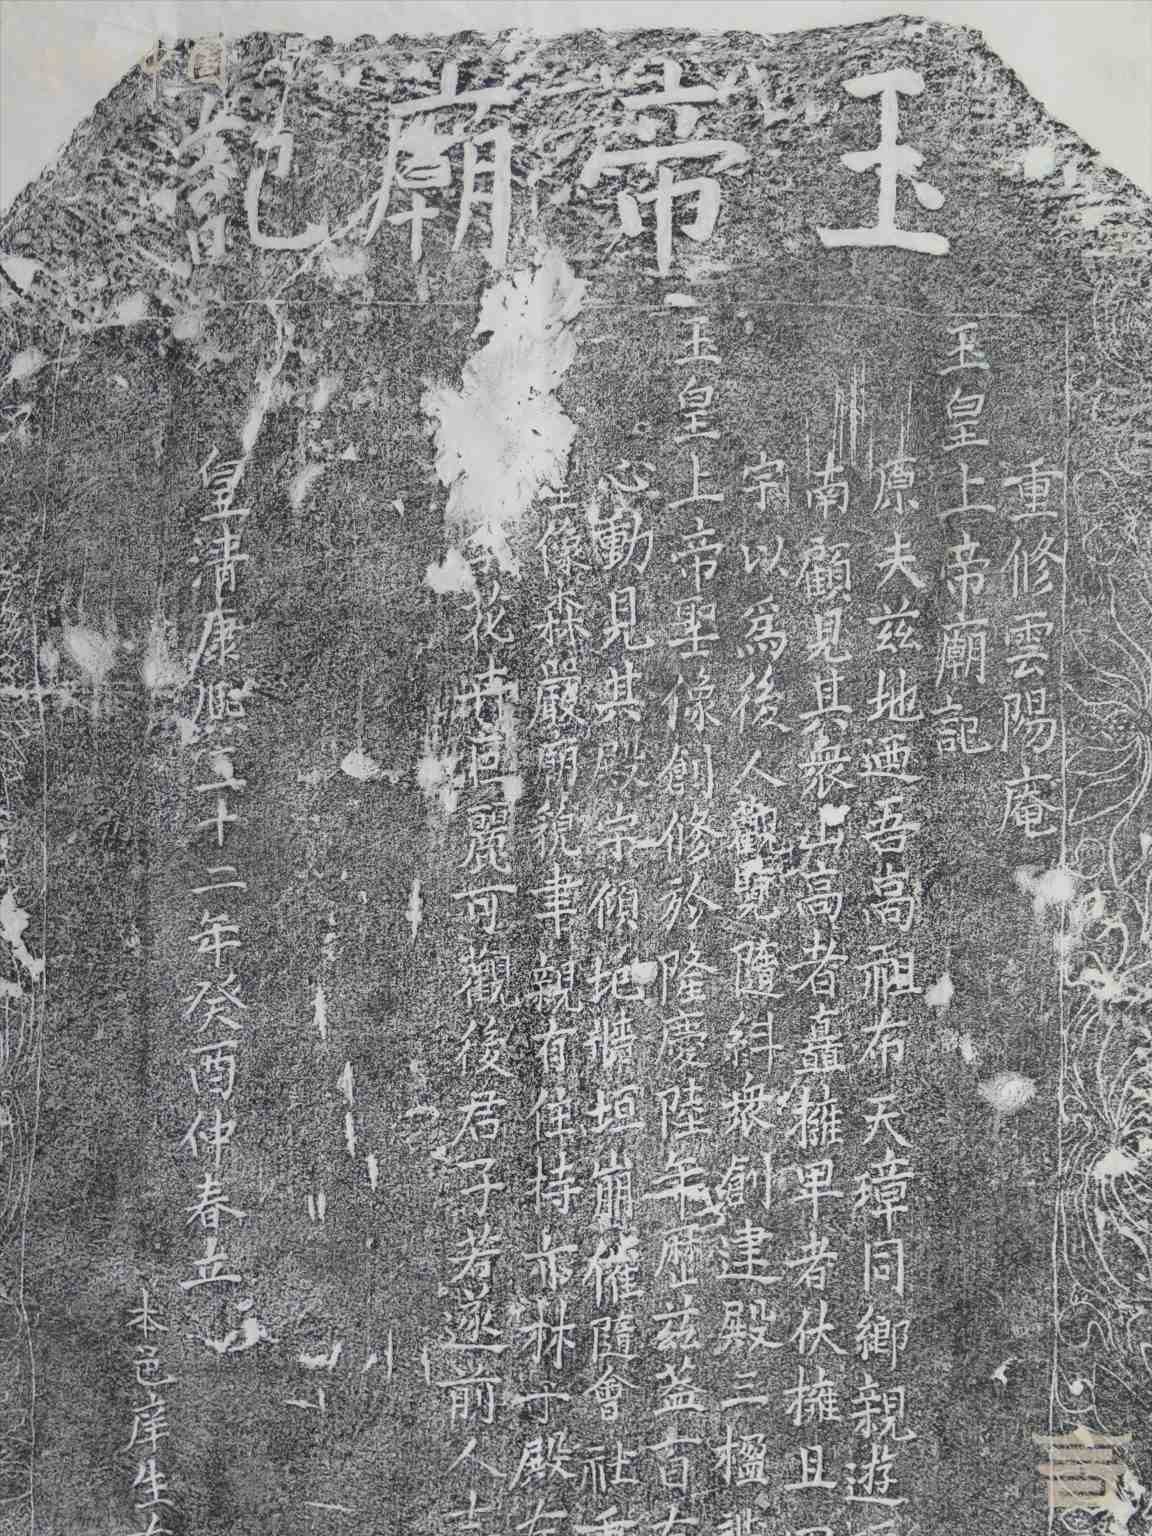 玉帝廟記
重修雲陽庵
玉皇上帝廟記
原夫茲地迺吾高祖布天璋同鄉親遊
南顧見其衆山高者矗擁卑者伏擁且
宗以為後人觀覽隨糾衆創建殿三楹
玉皇上帝聖像創修於隆慶陸年歷茲蓋百
心動見其殿宗傾圯牆垣崩催隨會社
像森嚴廟貌聿親有住持亦林于殿
花卉巨麗可觀後君子若遂前人
皇清康熙三十二年癸酉仲春立
本邑庠生